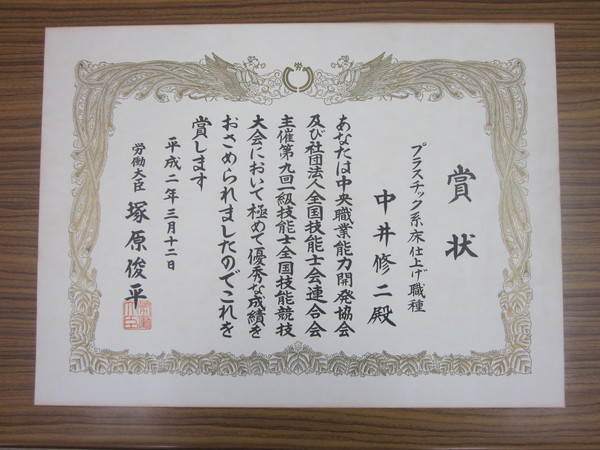 労
賞状
プラスチック系床仕上げ職種
中井修二殿
あなたは中央職業能力開発協会
及び社団法人全国技能士会連合会
主催第九回一級技能士全国技能競技
大会において極めて優秀な成績を
おさめられましたのでこれを
賞します
平成二年三月十二日
労働大臣 塚原俊平